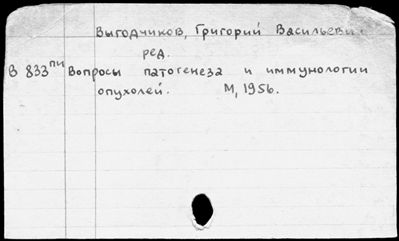 Выгодчиков, Григорий Васильевич
ред.
В 833пи Вопросы патогенеза и иммунологии
опухолей. М, 1956.